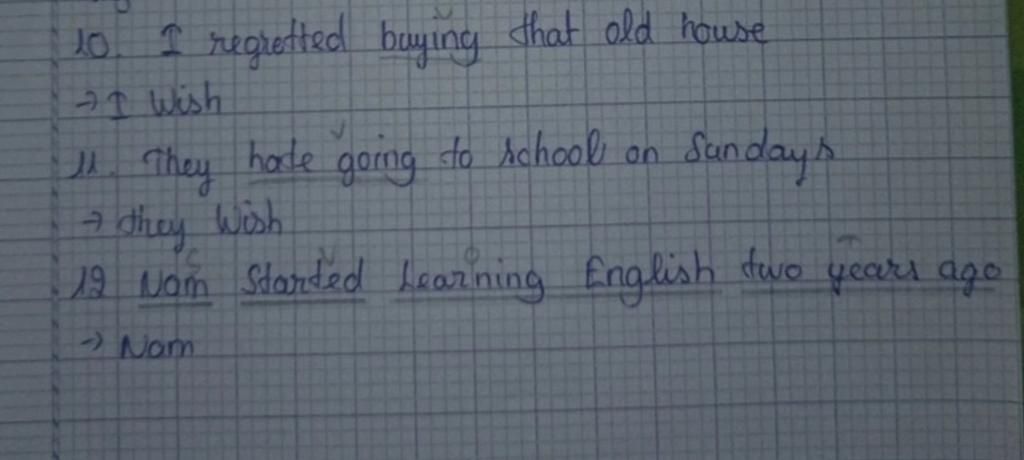 10. I regretted buying that old house
→ I Wish
11. They hate going to school on Sundays
→ they Wish
12 Nam Started Learning English two years ago
→ Nam